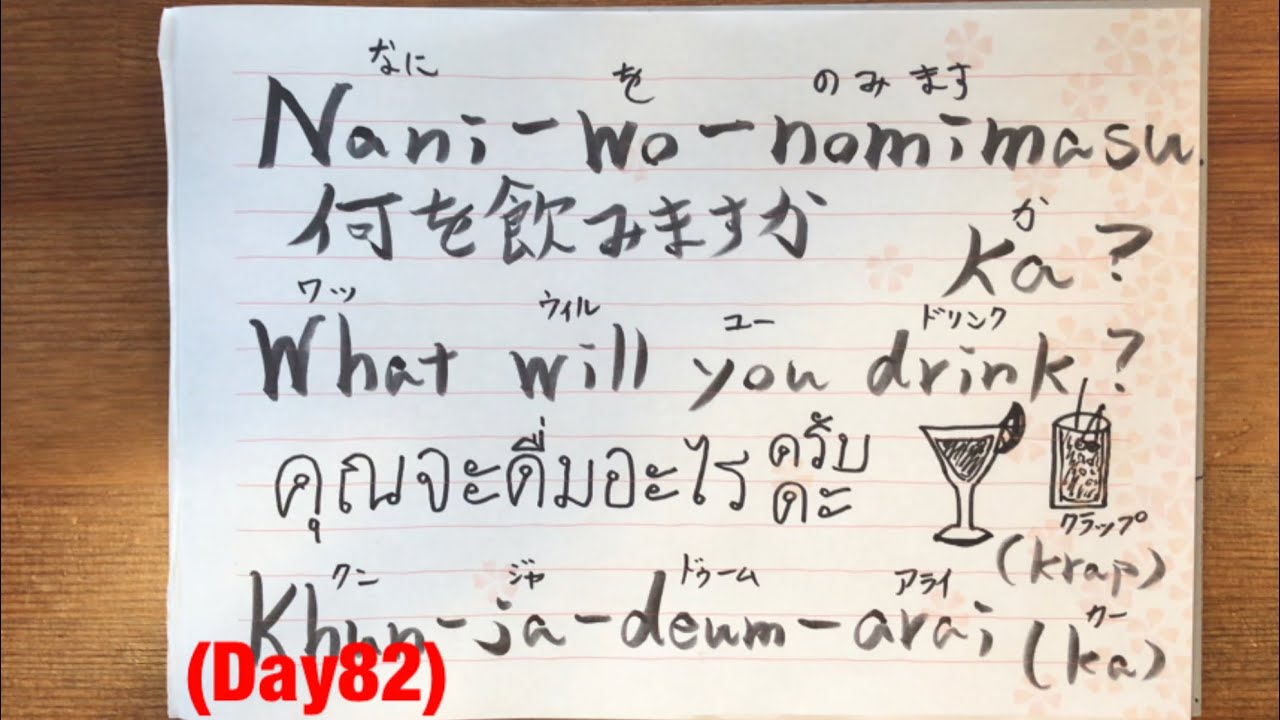 なに を のみます
Nani-wo-nomimasu
か
何を飲みますか ka?
ワッ ウィル ユー ドリンク
What will you drink?
คุณจะดื่มอะไร ครับ
คะ
クラップ
(krap)
クン ジャ ドゥーム アライ カー
Khun-ja-deum-arai (ka)
(Day82)